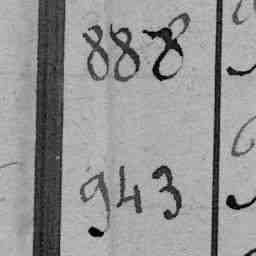 888
943